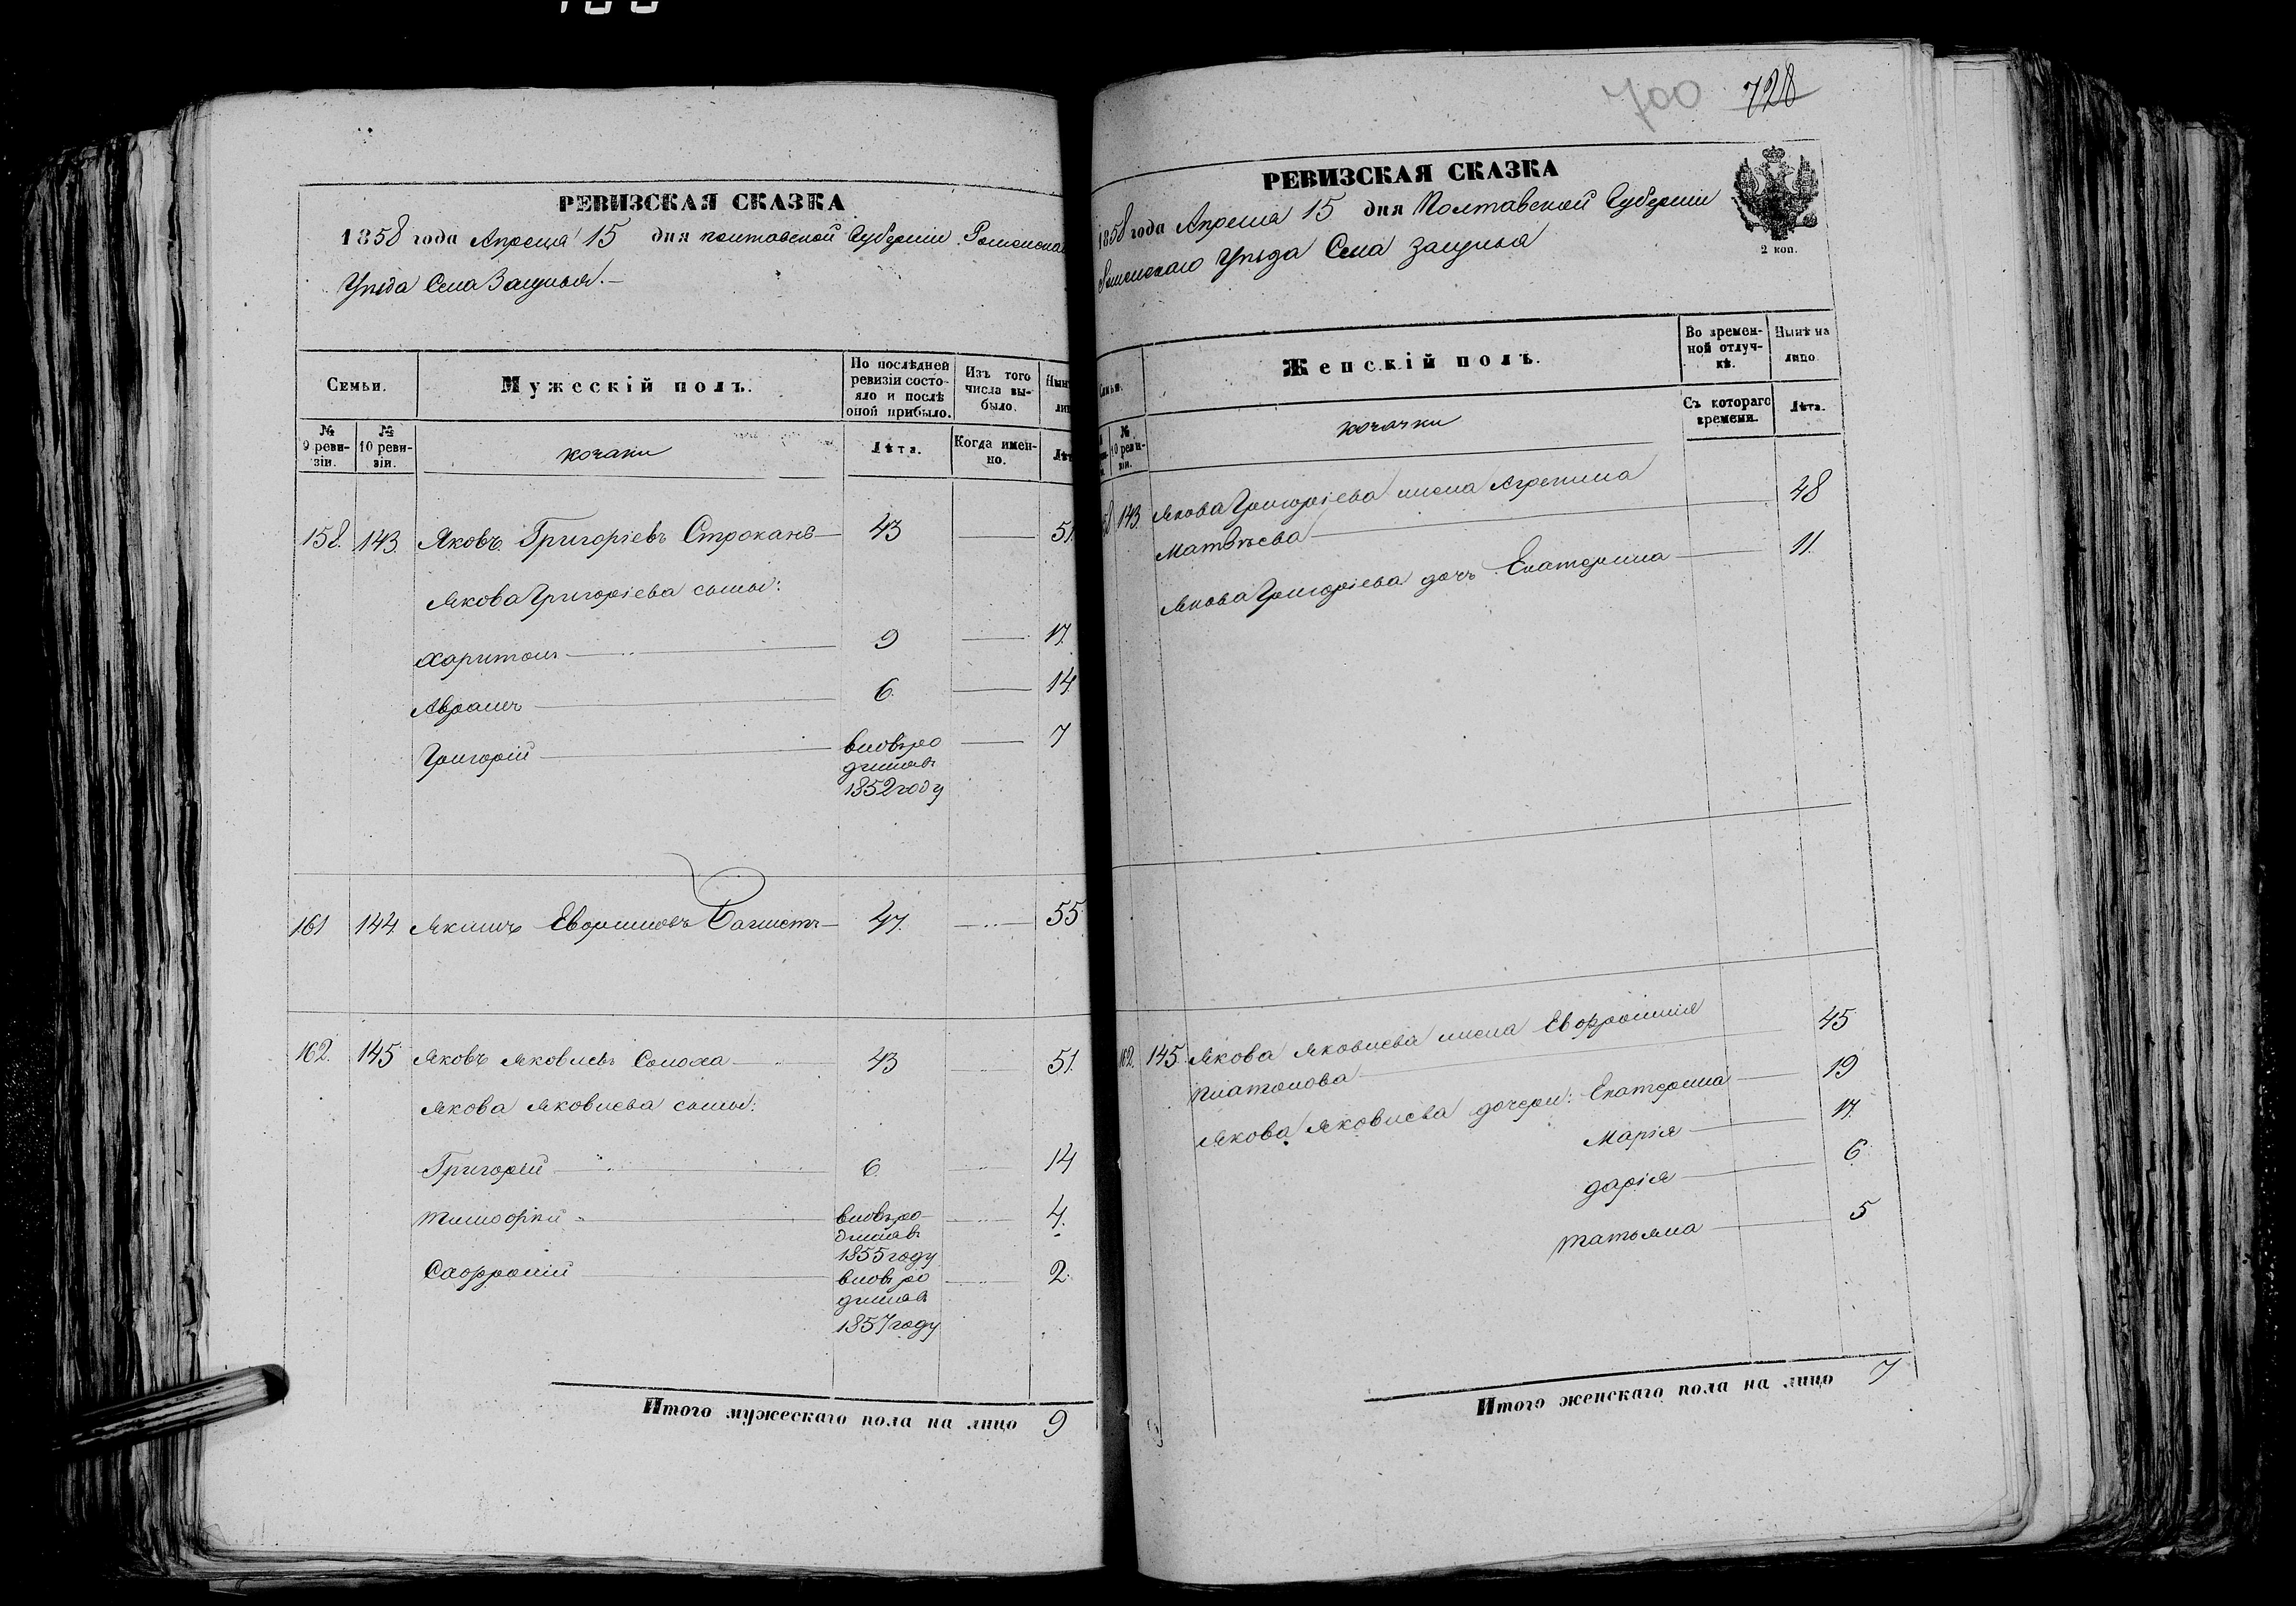 РЕВИЗСКАЯ СКАЗКА
1858 года Апреля 15 дня полтавской Губерніи Роменска
Уѣзда Села Защулья.
Семьи.
Мужескій полъ.
По послѣдней ревизіи состояло и послѣ оной прибыло.
Изъ того числа выбыло.
№ 9 ревизіи.
№ 10 ревизіи.
козаки
Лѣта.
Когда именно.
158. 143. Яковъ Григоріевъ Строкань 43 51.
Якова Григоріева сыны:
Харитонъ 9 17.
Аврамъ 6. 14.
Григорій вновь ро 7
дился
1852 году
161 144. Якимъ 47. 55
162. 145 Яковъ Яковлевъ Солоха 43 51.
Якова Яковлева сыны:
Григорій 6 14
Тимофѣй вновь ро 4.
дился
1855 году
Сафроній вновь ро 2.
дился
1857 году
Итого мужескаго пола на лицо 9
700 728
РЕВИЗСКАЯ СКАЗКА
1858 года Апреля 15 дня Полтавской Губерніи
Роменскаго Уѣзда Села Защулья
2 коп.
Семьи.
Женскій полъ.
Во временной отлучкѣ.
Нынѣ на лицо.
№ 10 ревизіи.
козачки
Съ котораго времени.
Лѣта.
143. Якова Григоріева жена Агрепина 48
Матвѣева
Якова Григоріева дочь Екатерина 11.
162. 145. Якова Яковлева жена Евфросинія 45
Платонова
Якова Яковлева дочери: Екатерина 19
Марія 17.
Дарія 6.
Татьяна 5
Итого женскаго пола на лицо 7